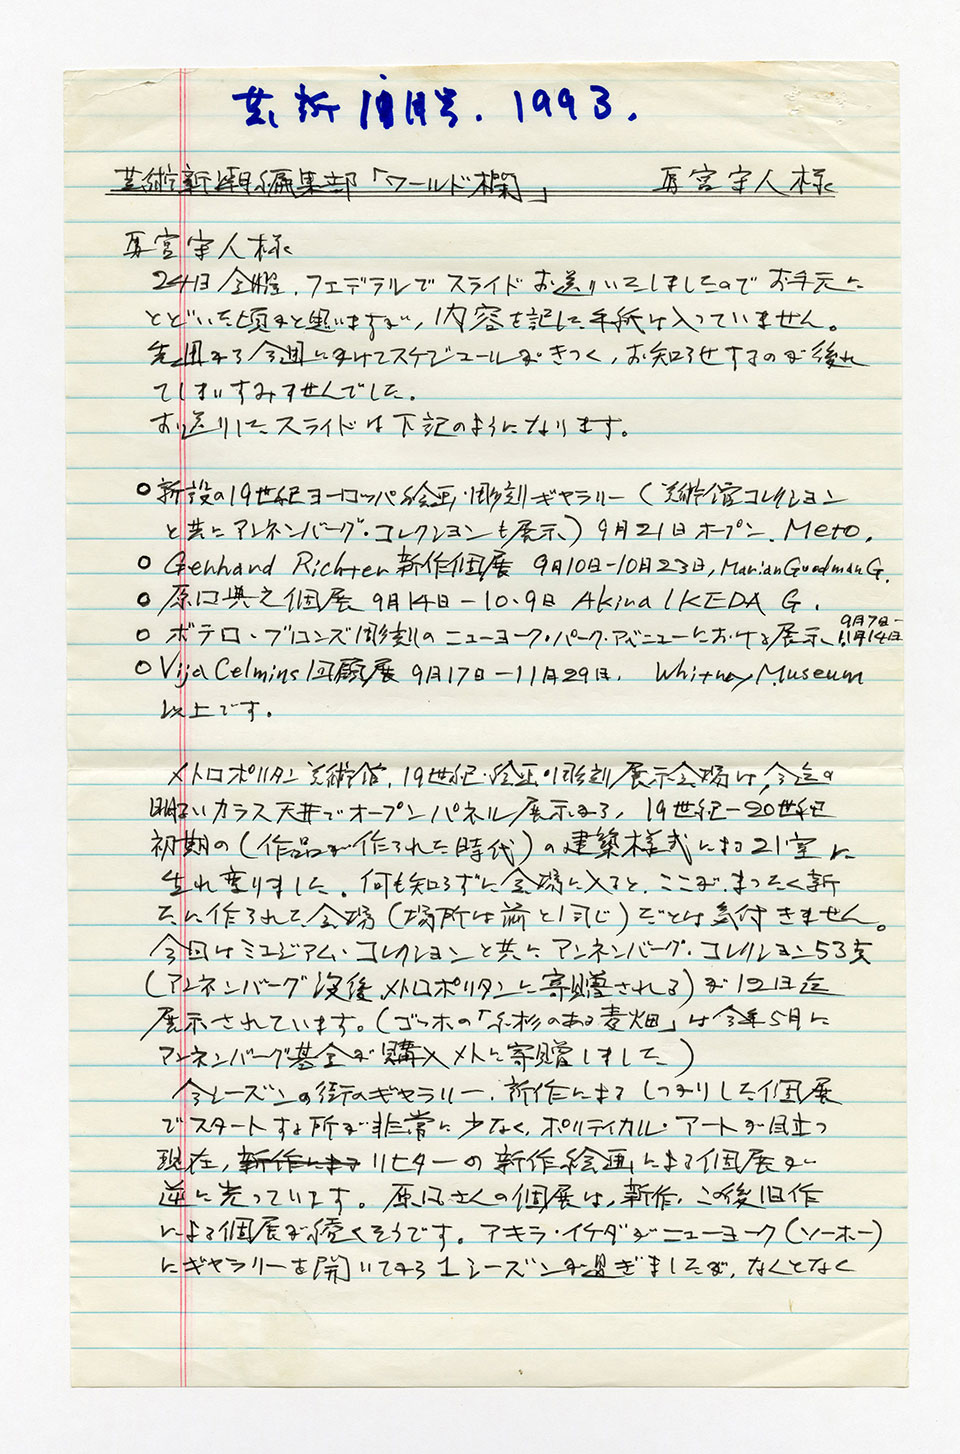 芸新 月号. 1993.
芸術新潮編集部「ワールド欄」 宮宇人様
宮宇人様
24日金曜、フェデラルでスライドお送りいたしましたのでお手元に
とどいた頃かと思いますが、内容を記した手紙は入っていません。
先週から今週にかけてスケジュールがきつく、お知らせするのが後れ
てしまいすみませんでした。
お送りしたスライドは下記のようになります。
○新設の19世紀ヨーロッパ絵画・彫刻ギャラリー(美術館コレクション
と共にアンネンバーグ・コレクションも展示) 9月21日オープン、Meto.
○Gerhard Richter 新作個展 9月10日-10月23日, Marian Goodman G.
○原口典之個展 9月14日-10.9日 Akira IKEDA G.
○ボテロ・ブロンズ彫刻のニューヨーク・パーク・アベニューにおける展示、9月7日-11月14日
○Vija Celmins 回顧展 9月17日-11月29日. Whitney Museum
以上です。
メトロポリタン美術館、19世紀・絵画・彫刻展示会場は、今迄の
明るいガラス天井でオープンパネル展示から、19世紀-20世紀
初期の(作品が作られた時代)の建築様式による21室に
生れ変りました。何も知らずに会場に入ると、ここが、まったく新
たに作られた会場(場所は前と同じ)だとは気付きません。
今回はミュジアム・コレクションと共にアンネンバーグ・コレクション53点
(アンネンバーグ没後、メトロポリタンに寄贈される)が12日迄
展示されています。(ゴッホの「糸杉のある麦畑」は今年5月に
アンネンバーグ基金が購入メトに寄贈しました)
今シーズンの街のギャラリー、新作によるしっかりした個展
でスタートする所が非常に少なく、ポリティカル・アートが目立つ
現在、リヒターの新作絵画による個展が
逆に光っています。原口さんの個展は、新作、この後旧作
による個展が続くそうです。アキラ・イケダがニューヨーク(ソーホー)
にギャラリーを開いてから1シーズンが過ぎましたが、なんとなく